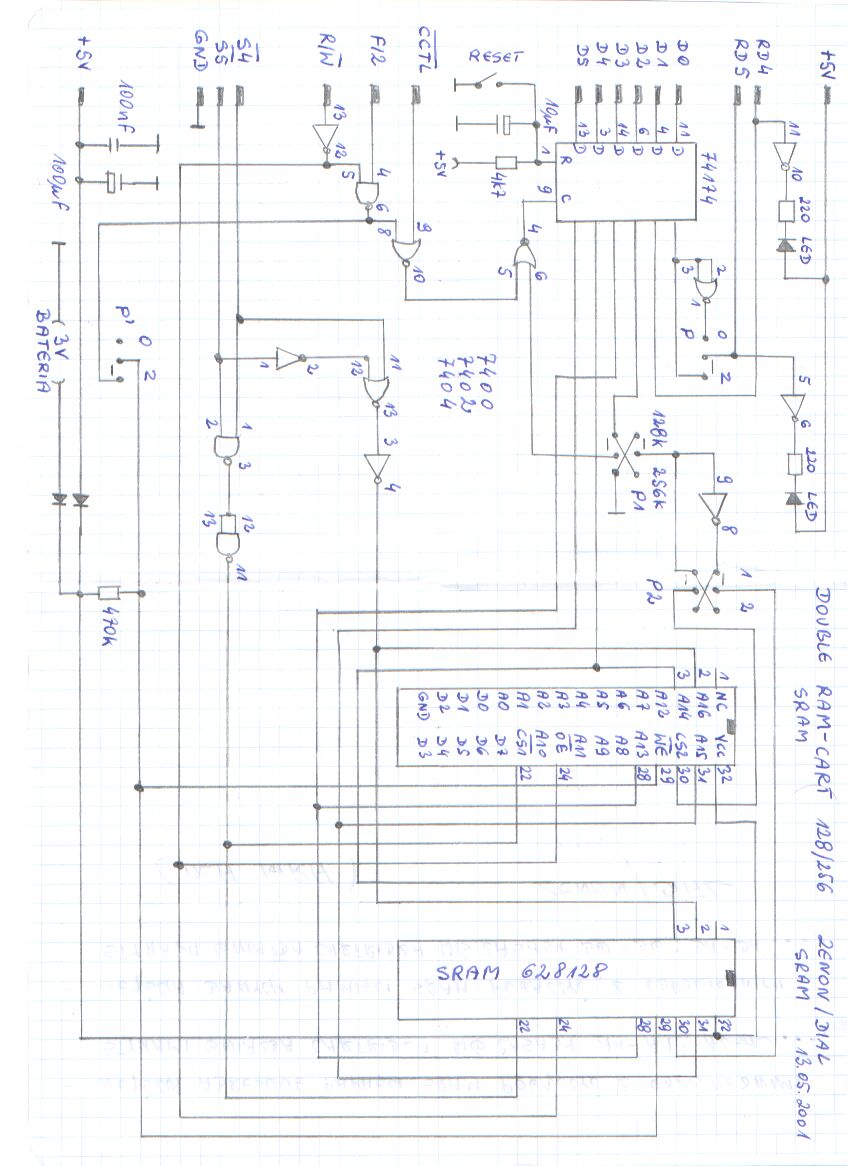 DOUBLE RAM-CART 128/256 ZENON/DIAL
SRAM SRAM 13.05.2001
+5V
RD4
RD5
11
10
220
LED
5
6
220
LED
D0
D1
D2
D3
D4
D5
11 D
4 D
6 D
14 D
3 D
13 D
74174
R
C
1
9
2
3
1
P
0
2
9
8
1
2
P2
128k
256k
P1
RESET
10µF
4k7
+5V
6
5
4
7400
7402
7404
C̅C̅T̅L̅
F/2
R/W̅
9
8
10
4
5
6
13
12
S̅4̅
S̅5̅
GND
11
12
13
3
4
1
2
1
2
3
12
13
11
+5V
100nF
100µF
P'
0
2
3V
BATERIA
470k
1 NC
2 A16
3 A14
A12
A7
A6
A5
A4
A3
A2
A1
A0
D0
D1
D2
GND
VCC 32
A15 31
CS2 30
W̅E̅ 29
A13 28
A8
A9
A11
O̅E̅ 24
A10
C̅S̅1̅ 22
D7
D6
D5
D4
D3
1
2
3
SRAM 628128
32
31
30
29
28
24
22